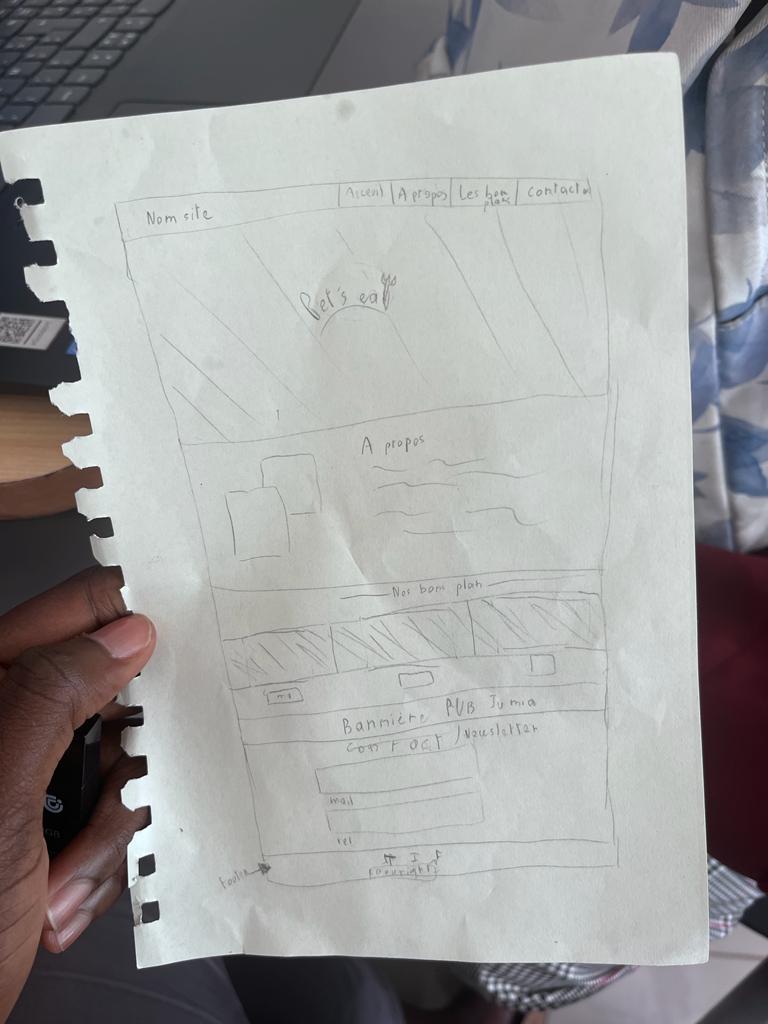 Nom site
Acceuil
A propos
Les bom
plans
Contacts
Pet's eat
A propos
Nos bom plan
Bannière PUB Jumia
Contact / Newsletter
mail
tel
Footer